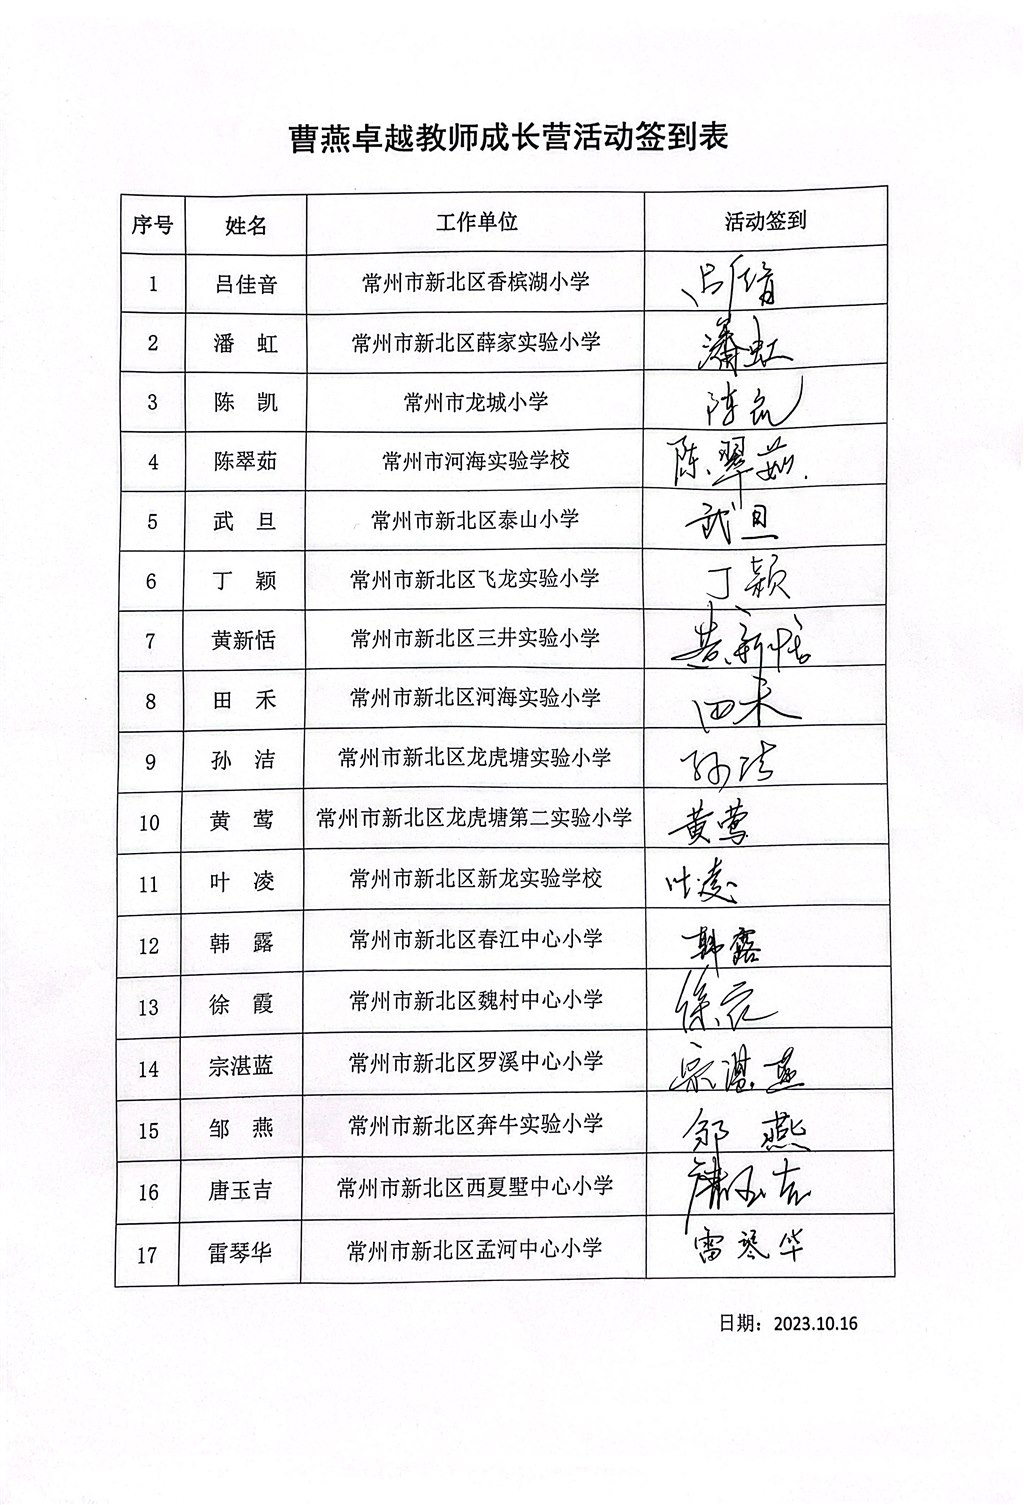 曹燕卓越教师成长营活动签到表
序号 姓名 工作单位 活动签到
1 吕佳音 常州市新北区香槟湖小学 吕佳音
2 潘 虹 常州市新北区薛家实验小学 潘虹
3 陈 凯 常州市龙城小学 陈凯
4 陈翠茹 常州市河海实验学校 陈翠茹
5 武 旦 常州市新北区泰山小学 武旦
6 丁 颖 常州市新北区飞龙实验小学 丁颖
7 黄新恬 常州市新北区三井实验小学 黄新恬
8 田 禾 常州市新北区河海实验小学 田禾
9 孙 洁 常州市新北区龙虎塘实验小学 孙洁
10 黄 莺 常州市新北区龙虎塘第二实验小学 黄莺
11 叶 凌 常州市新北区新龙实验学校 叶凌
12 韩 露 常州市新北区春江中心小学 韩露
13 徐 霞 常州市新北区魏村中心小学 徐霞
14 宗湛蓝 常州市新北区罗溪中心小学 宗湛蓝
15 邹 燕 常州市新北区奔牛实验小学 邹燕
16 唐玉吉 常州市新北区西夏墅中心小学 唐玉吉
17 雷琴华 常州市新北区孟河中心小学 雷琴华
日期：2023.10.16